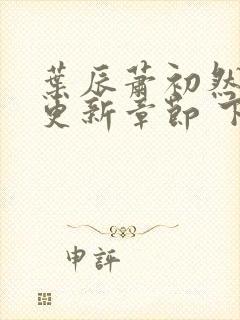 葉辰蕭初然
更新章節 下
申評